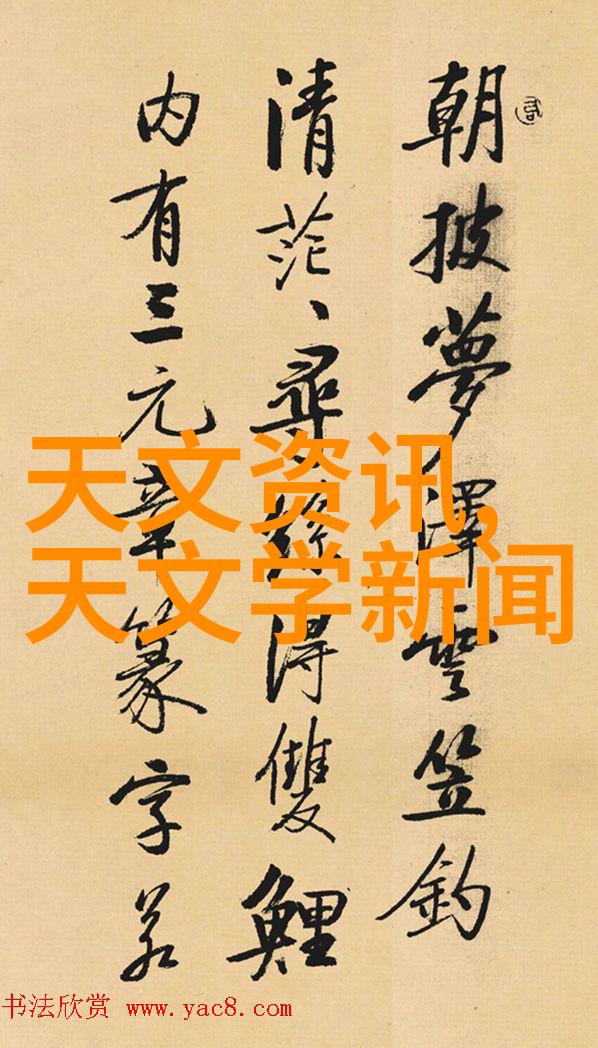 朝披夢澤雲笠釣
清茫〻尋絲得雙鯉
内有三元章篆字若
天文资讯,
天文学新闻
书法欣赏 www.yac8.com